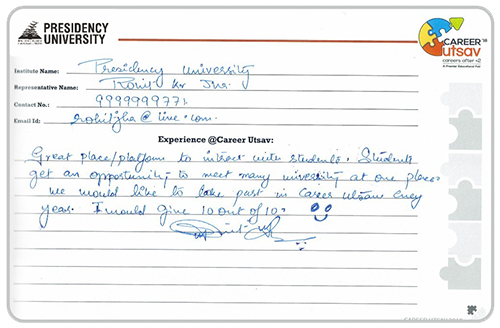 PRESIDENCY
UNIVERSITY
CAREER
utsav
careers after +2
A Premier Educational Fair
Institute Name: Presidency University
Representative Name: Rohit Kr Jha.
Contact No.: 9999999771
Email Id: rohitjha@live.com
Experience @Career Utsav:
Great place/platform to intract with students. Students
get an opportunity to meet many university at one place.
We would like to take part in Career utsav every
year. I would give 10 out of 10.